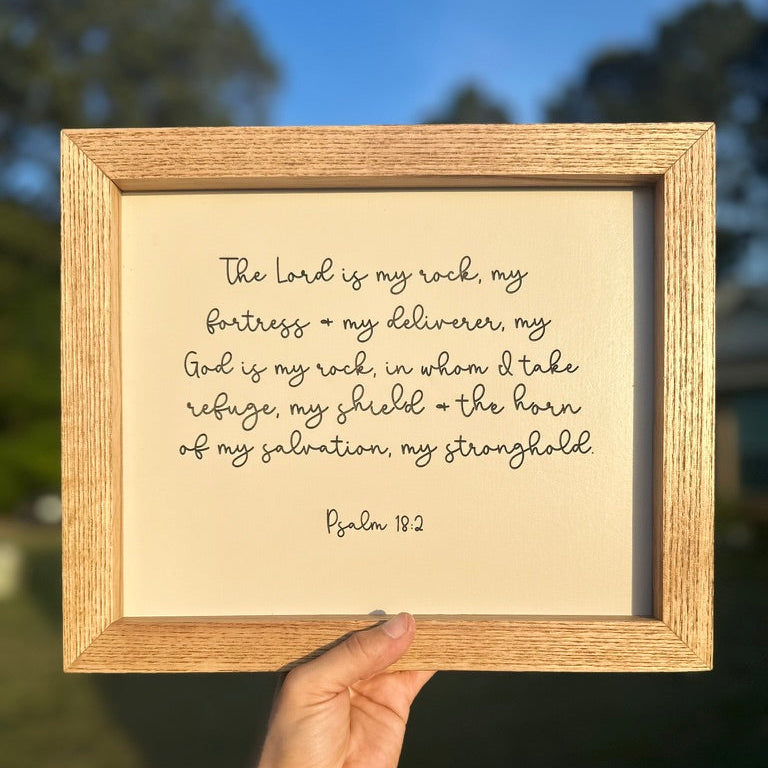 The Lord is my rock, my
fortress + my deliverer, my
God is my rock, in whom I take
refuge, my shield + the horn
of my salvation, my stronghold.
Psalm 18:2